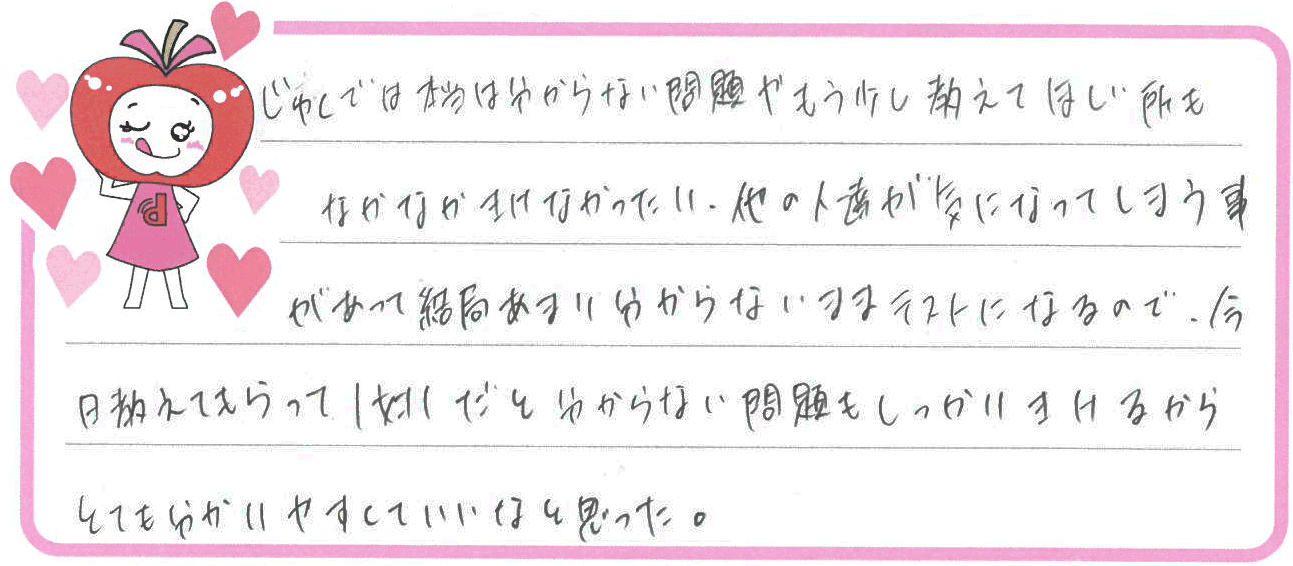 じゅくでは本当は分からない問題やもう少し教えてほしい所も
なかなかきけなかったり、他の人達が気になってしまう事
があって結局あまり分からないままテストになるので、今
日教えてもらって1対1だと分からない問題もしっかりきけるから
とても分かりやすくていいなと思った。